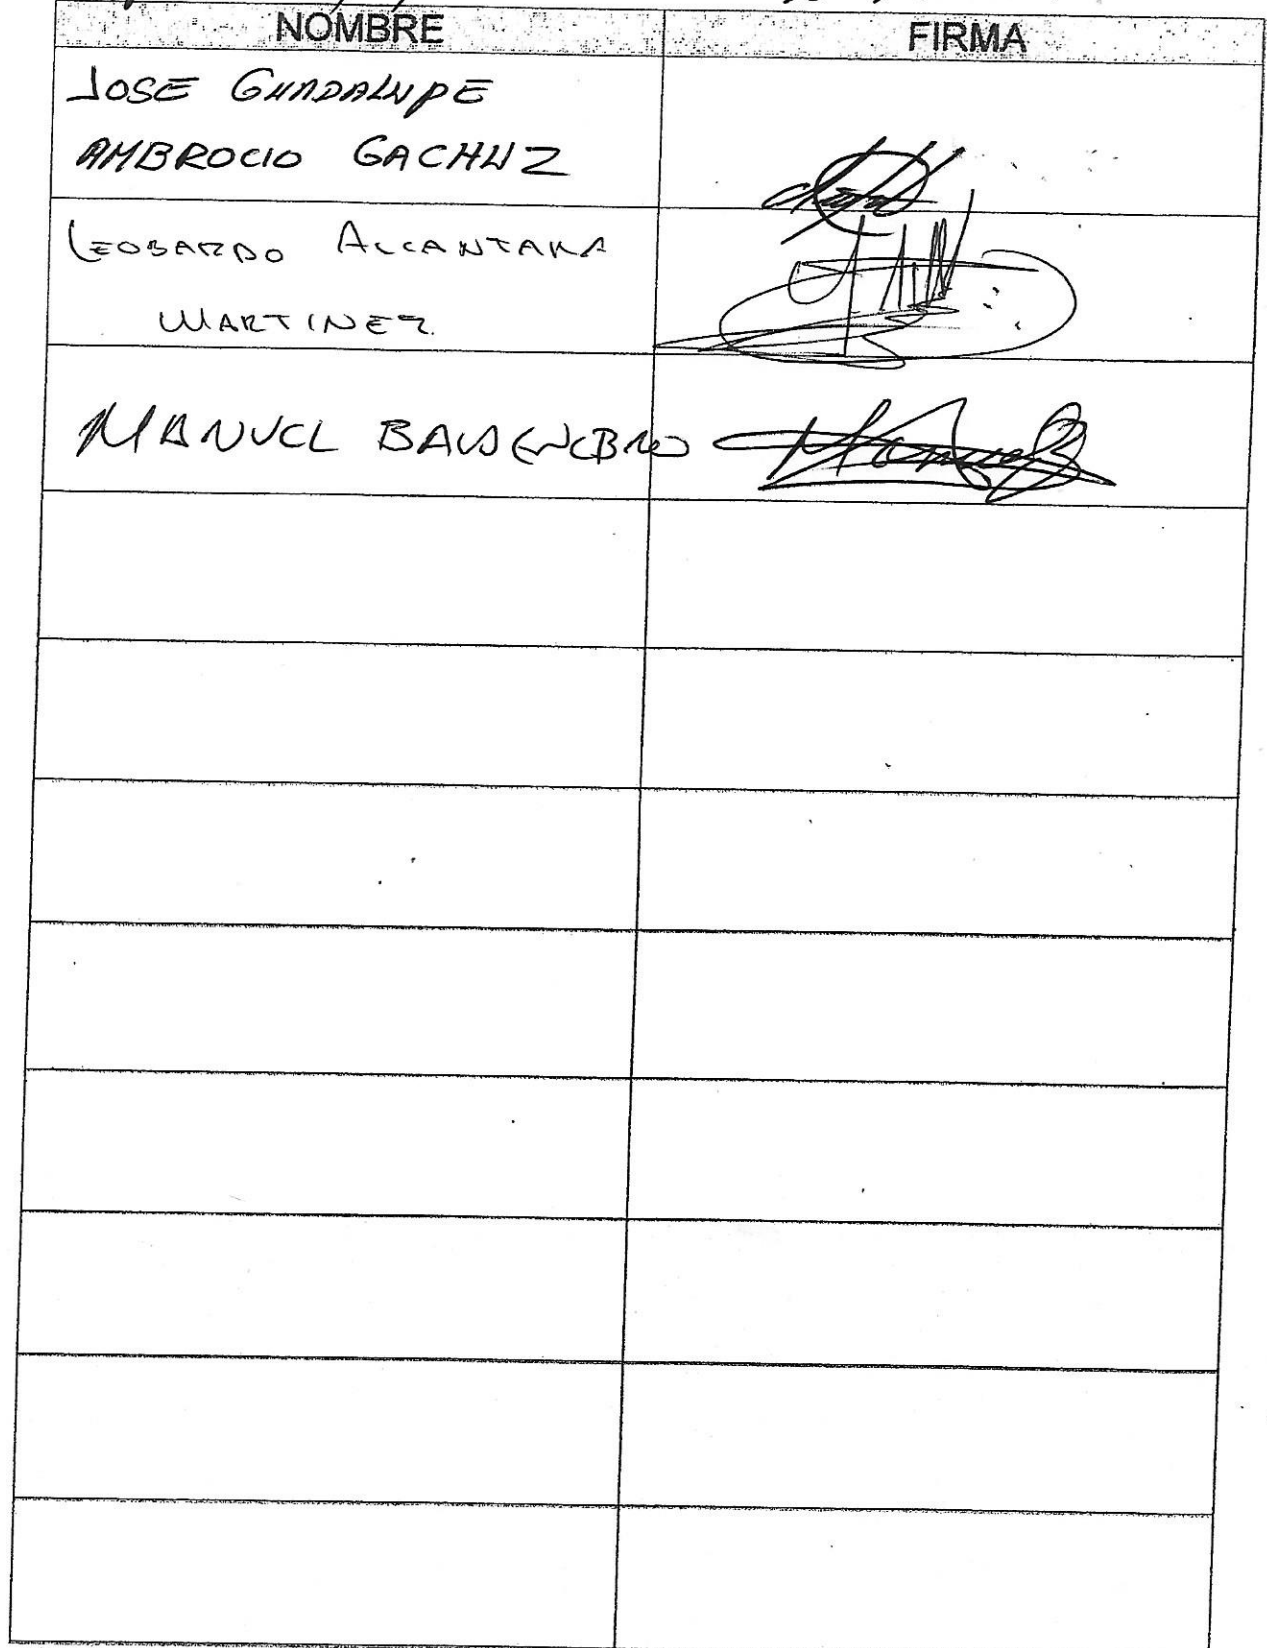 NOMBRE FIRMA
JOSE GUADALUPE
AMBROCIO GACHUZ
LEOBARDO ALCANTARA
MARTINEZ
MANUEL BALDENEBRO